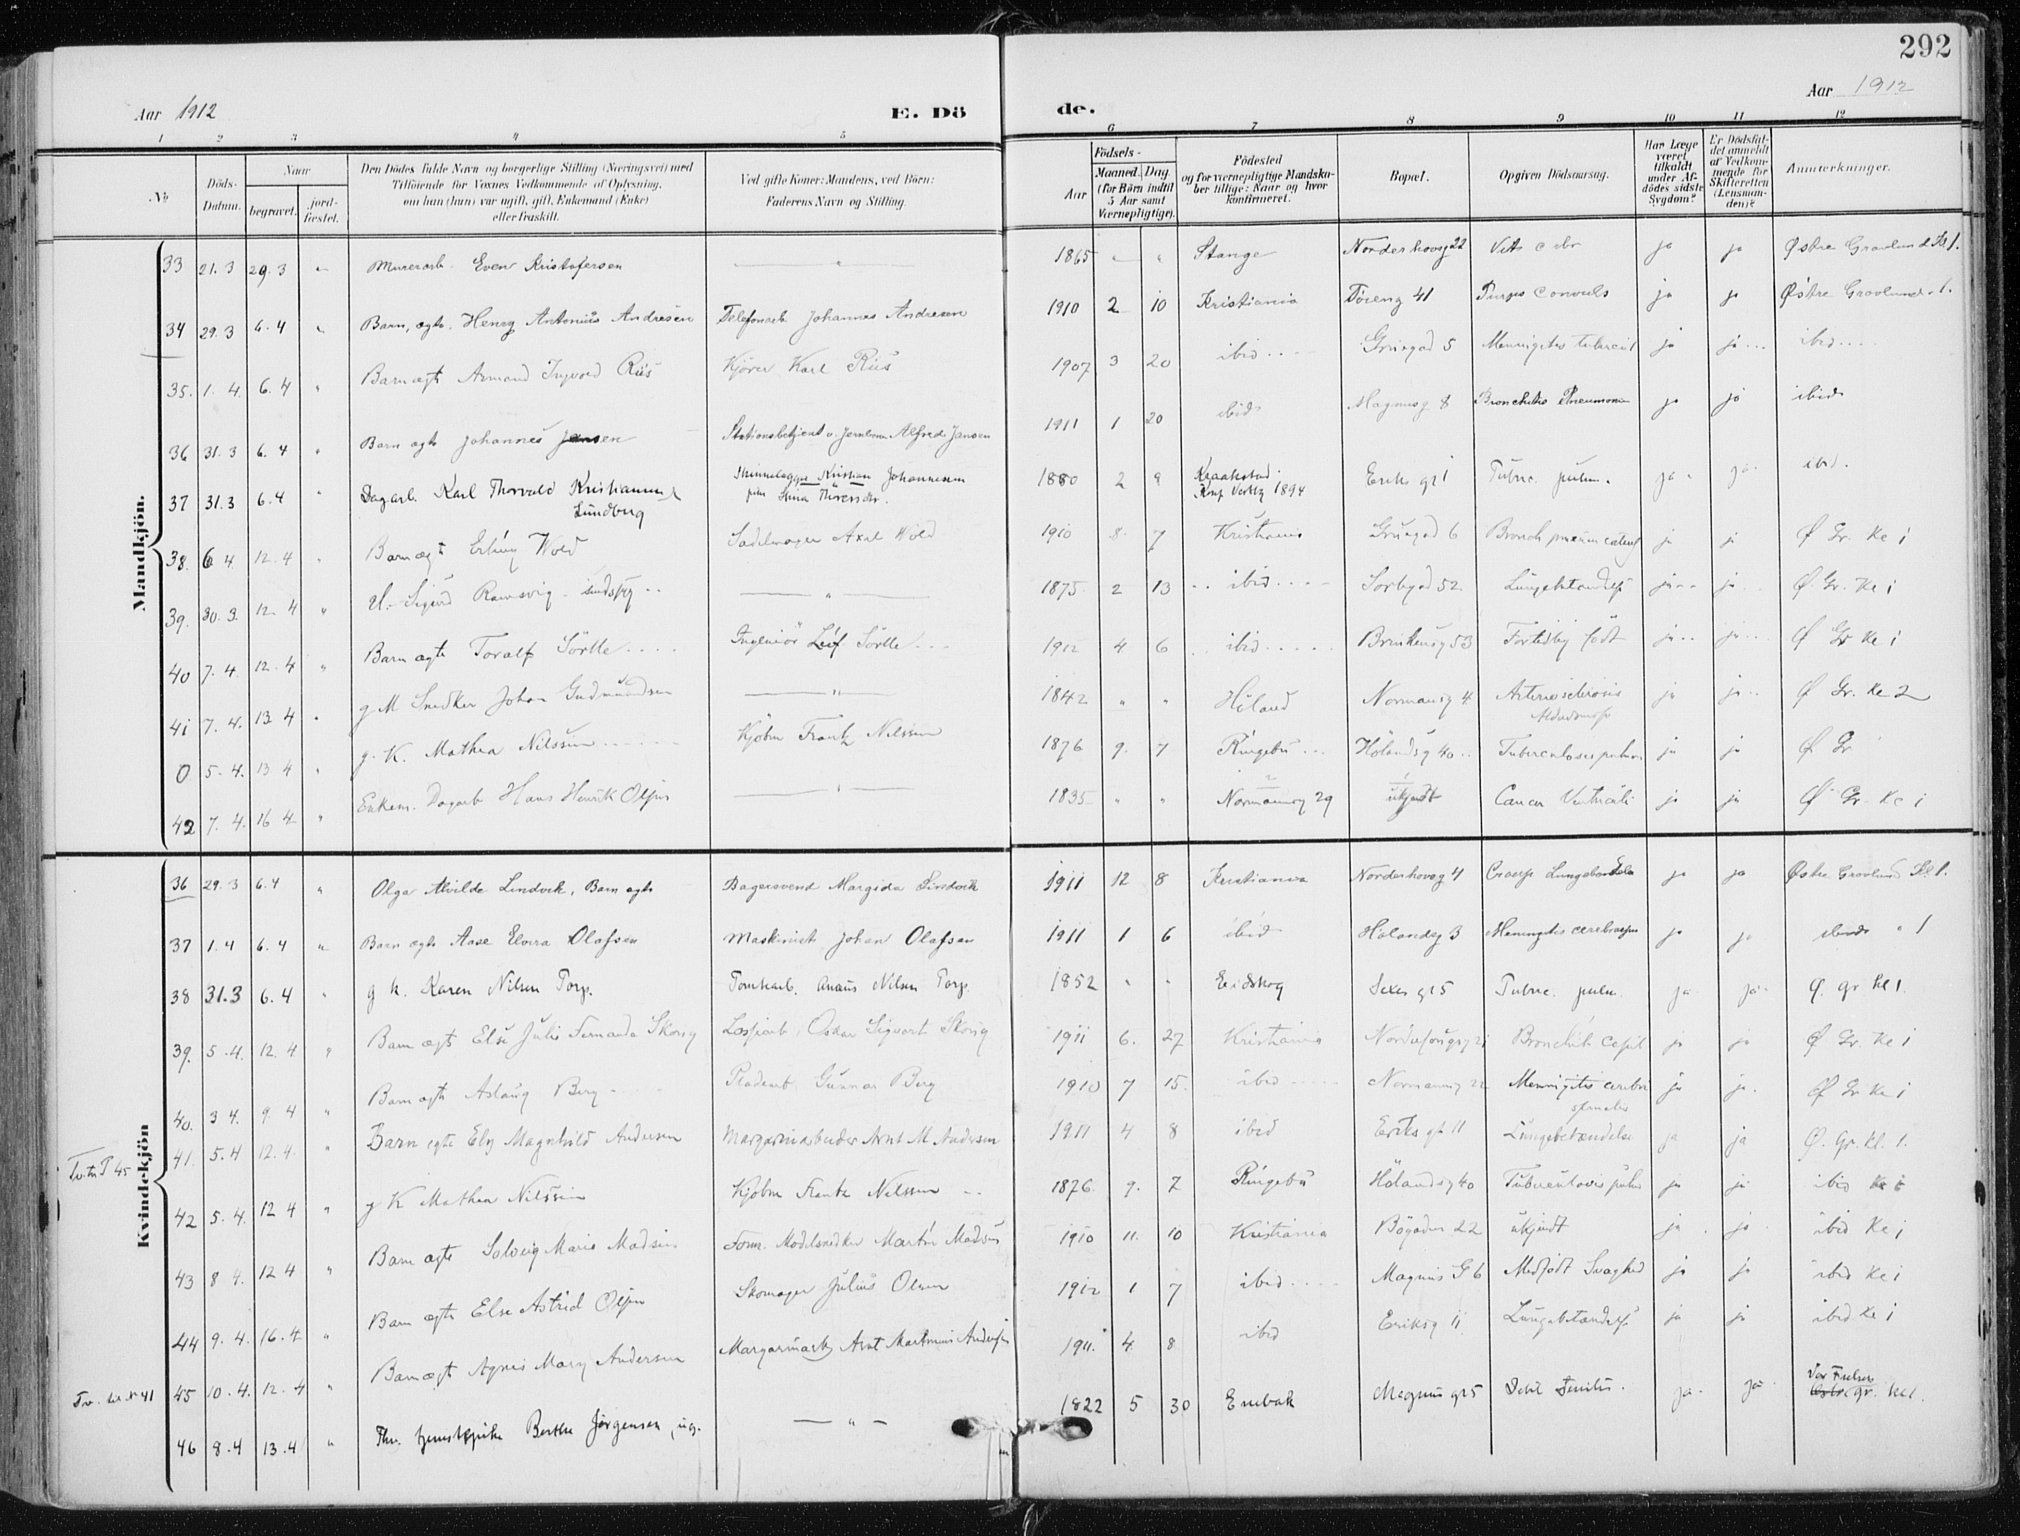 292
Aar 1912
E. Dö de.
Aar 1912
1 2 3 4 5 6 7 8 9 10 11 12
No
Döds-Datum.
Naar
begravet.
jord-fæstet.
Den Dödes fulde Navn og borgerlige Stilling (Næringsvei) med
Tilföiende for Voxnes Vedkommende af Oplysning,
om han (hun) var ugift, gift, Enkemand (Enke)
eller fraskilt.
Ved gifte Koner: Mandens, ved Börn:
Faderens Navn og Stilling.
Födsels-
Aar
Maaned. Dag.
(for Börn indtil
5 Aar samt
Værnepligtige).
Födested
og for værnepligtige Mandska-
ber tillige: Naar og hvor
konfirmeret.
Bopæl.
Opgiven Dödsaarsag.
Har Læge
været
tilkaldt
under Af-
dödes sidste
Sygdom?
Er Dödsfal-
det anmeldt
af Vedkom-
mende for
Skifteretten
(Lensman-
den)?
Anmærkninger.
Mandkjön.
33 21.3 29.3 " Murerarb. Even Kristofersen — " — 1865 " " Stange Norderhovsg 22 ja ja Østre Gravlund Kl 1.
34 29.3 6.4 " Barn, ægte. Henry Antonius Andresen Telefonarb Johannes Andresen 1910 2 10 Kristiania Töieng 41 ja ja Østre Gravlund 1.
35. 1.4. 6.4 " Barn ægt Armand Ingvold Riis Kjörer Karl Riis 1907 3 20 ibid Gruegad 5 ja ja ibid
36 31.3 6.4 " Barn ægte Johannes Jansen Stationsbetjent v. Jernbanen Alfred Jansen 1911 1 20 ibid Magnusg 8 Bronchitis Pneumoni ja jo ibid
37 31.3 6.4 " Dagarb. Karl Thorvald Kristiansen Lundberg Kristian Johannesen 1880 2 9 Kraakstad 1894 Eriks gt 1 Tuberc. pulm. ja ja ibid.
38. 6 4 12.4 " Barn ægt Erling Wold Sadelmager Axel Wold 1910 8. 7 Kristiania Gruegad 6 ja ja Ø Gr. Kl 1
39. 30.3. 12.4 " U. Sigurd Ramsvig sindssyg — " — 1875 2 13 ibid Sorbygad 52 Lungebetændelse ja ja Ø. Gr. Kl 1
40 7.4. 12.4 " Barn ægte Toralf Sörlle Ingeniör Leif Sörlle 1912 4 6 ibid Brinkensg 53 Fortidlig födt ja ja Ø Gr Kl 1
41 7.4. 13 4 " g M Snedker Johan Gudmundsen — " — 1842 " " Höland Normansg 4 Arteriosclerosis ja ja Ø Gr. Kl 2
0 5.4. 13 4 " g. K. Mathea Nilssen Kjöbm Frantz Nilssen 1876 9. 7 Ringebu Hölandsg 40 Tuberculosis pulmon ja ja Ø Gr
42 7.4. 16 4 " Enkem. Dagarb Hans Henrik Olsen — " — 1835 " " Normannsg 29 ukjendt Cancer Ventriculi ja ja Ø Gr. Kl 1
Kvindekjön
36 29.3 6.4 " Olga Alvilde Lindvik, Barn ægte Bagersvend Margido Lindvik 1911 12 8 Kristiania Norderhovsg 4 ja ja Østre Gravlund Kl 1.
37 1.4 6.4 " Barn ægte Aase Elvira Olafsen Maskinist Johan Olafsen 1911 1 6 ibid Hölandsg 3 Meningitis cerebrospin ja ja ibid " 1
38 31.3 6.4 " g k. Karen Nilsen Torp. Tomtearb. Nilsen Torp. 1852 " " Eidskog gt 5 Tuberc. pulm. ja ja Ø. gr Kl 1.
39. 5.4. 12.4 " Barn ægte Else Julie Fernanda Skorsg Oskar Sigvart Skorsg 1911 6. 27 Kristiania Bronchit capil ja ja Ø Gr. Kl 1
40. 3 4. 9 4 " Barn ægte Aslaug Berg Gunnar Berg 1910 7 15. ibid Normannsg 22 Menningitis cerebro spinalis ja ja. Ø Gr Kl 1
Tv. tv. № 45
41. 5.4 12.4. " Barn ægte Ely Magnhild Andersen Margarinarbeider Arnt M Andersen 1911 4 8 ibid Eriks gt 11 Lungebetændelse ja ja Ø. Gr. Kl. 1.
42 5.4. 12 4 " g K Mathea Nilssen Kjöbm Frantz Nilssen 1876 9. 7 Ringebu Hölandsg 40 Tuberculosis pulm ja ja ibid Kl 1
43 8 4. 12 4 " Barn ægte Solveig Marie Madsen Modelsnedker Martin Madsen 1910 11. 10 Kristiania Bögaden 22 ukjendt ja ja ibid Kl 1
44 9.4. 16.4. " Barn ægte Else Astrid Olsen Skomager Julius Olsen 1912 1 7 ibid Magnus G 6 Medfödt Svaghed ja ja ibid Kl 1
Tv. tv. № 41
45 10.4. 12.4 " Barn ægt Agnes Mary Andersen Margarinarb Arnt Martinius Andersen 1911. 4. 8 ibid Eriksg 11 Lungebetændelse ja ja ibid Kl 1
46 8.4 13.4 " Berthe Jørgensen, ug. — " — 1822 5 30 Enebak Magnus gt 5 ja ja Vor Frelser gr. Kl 1.